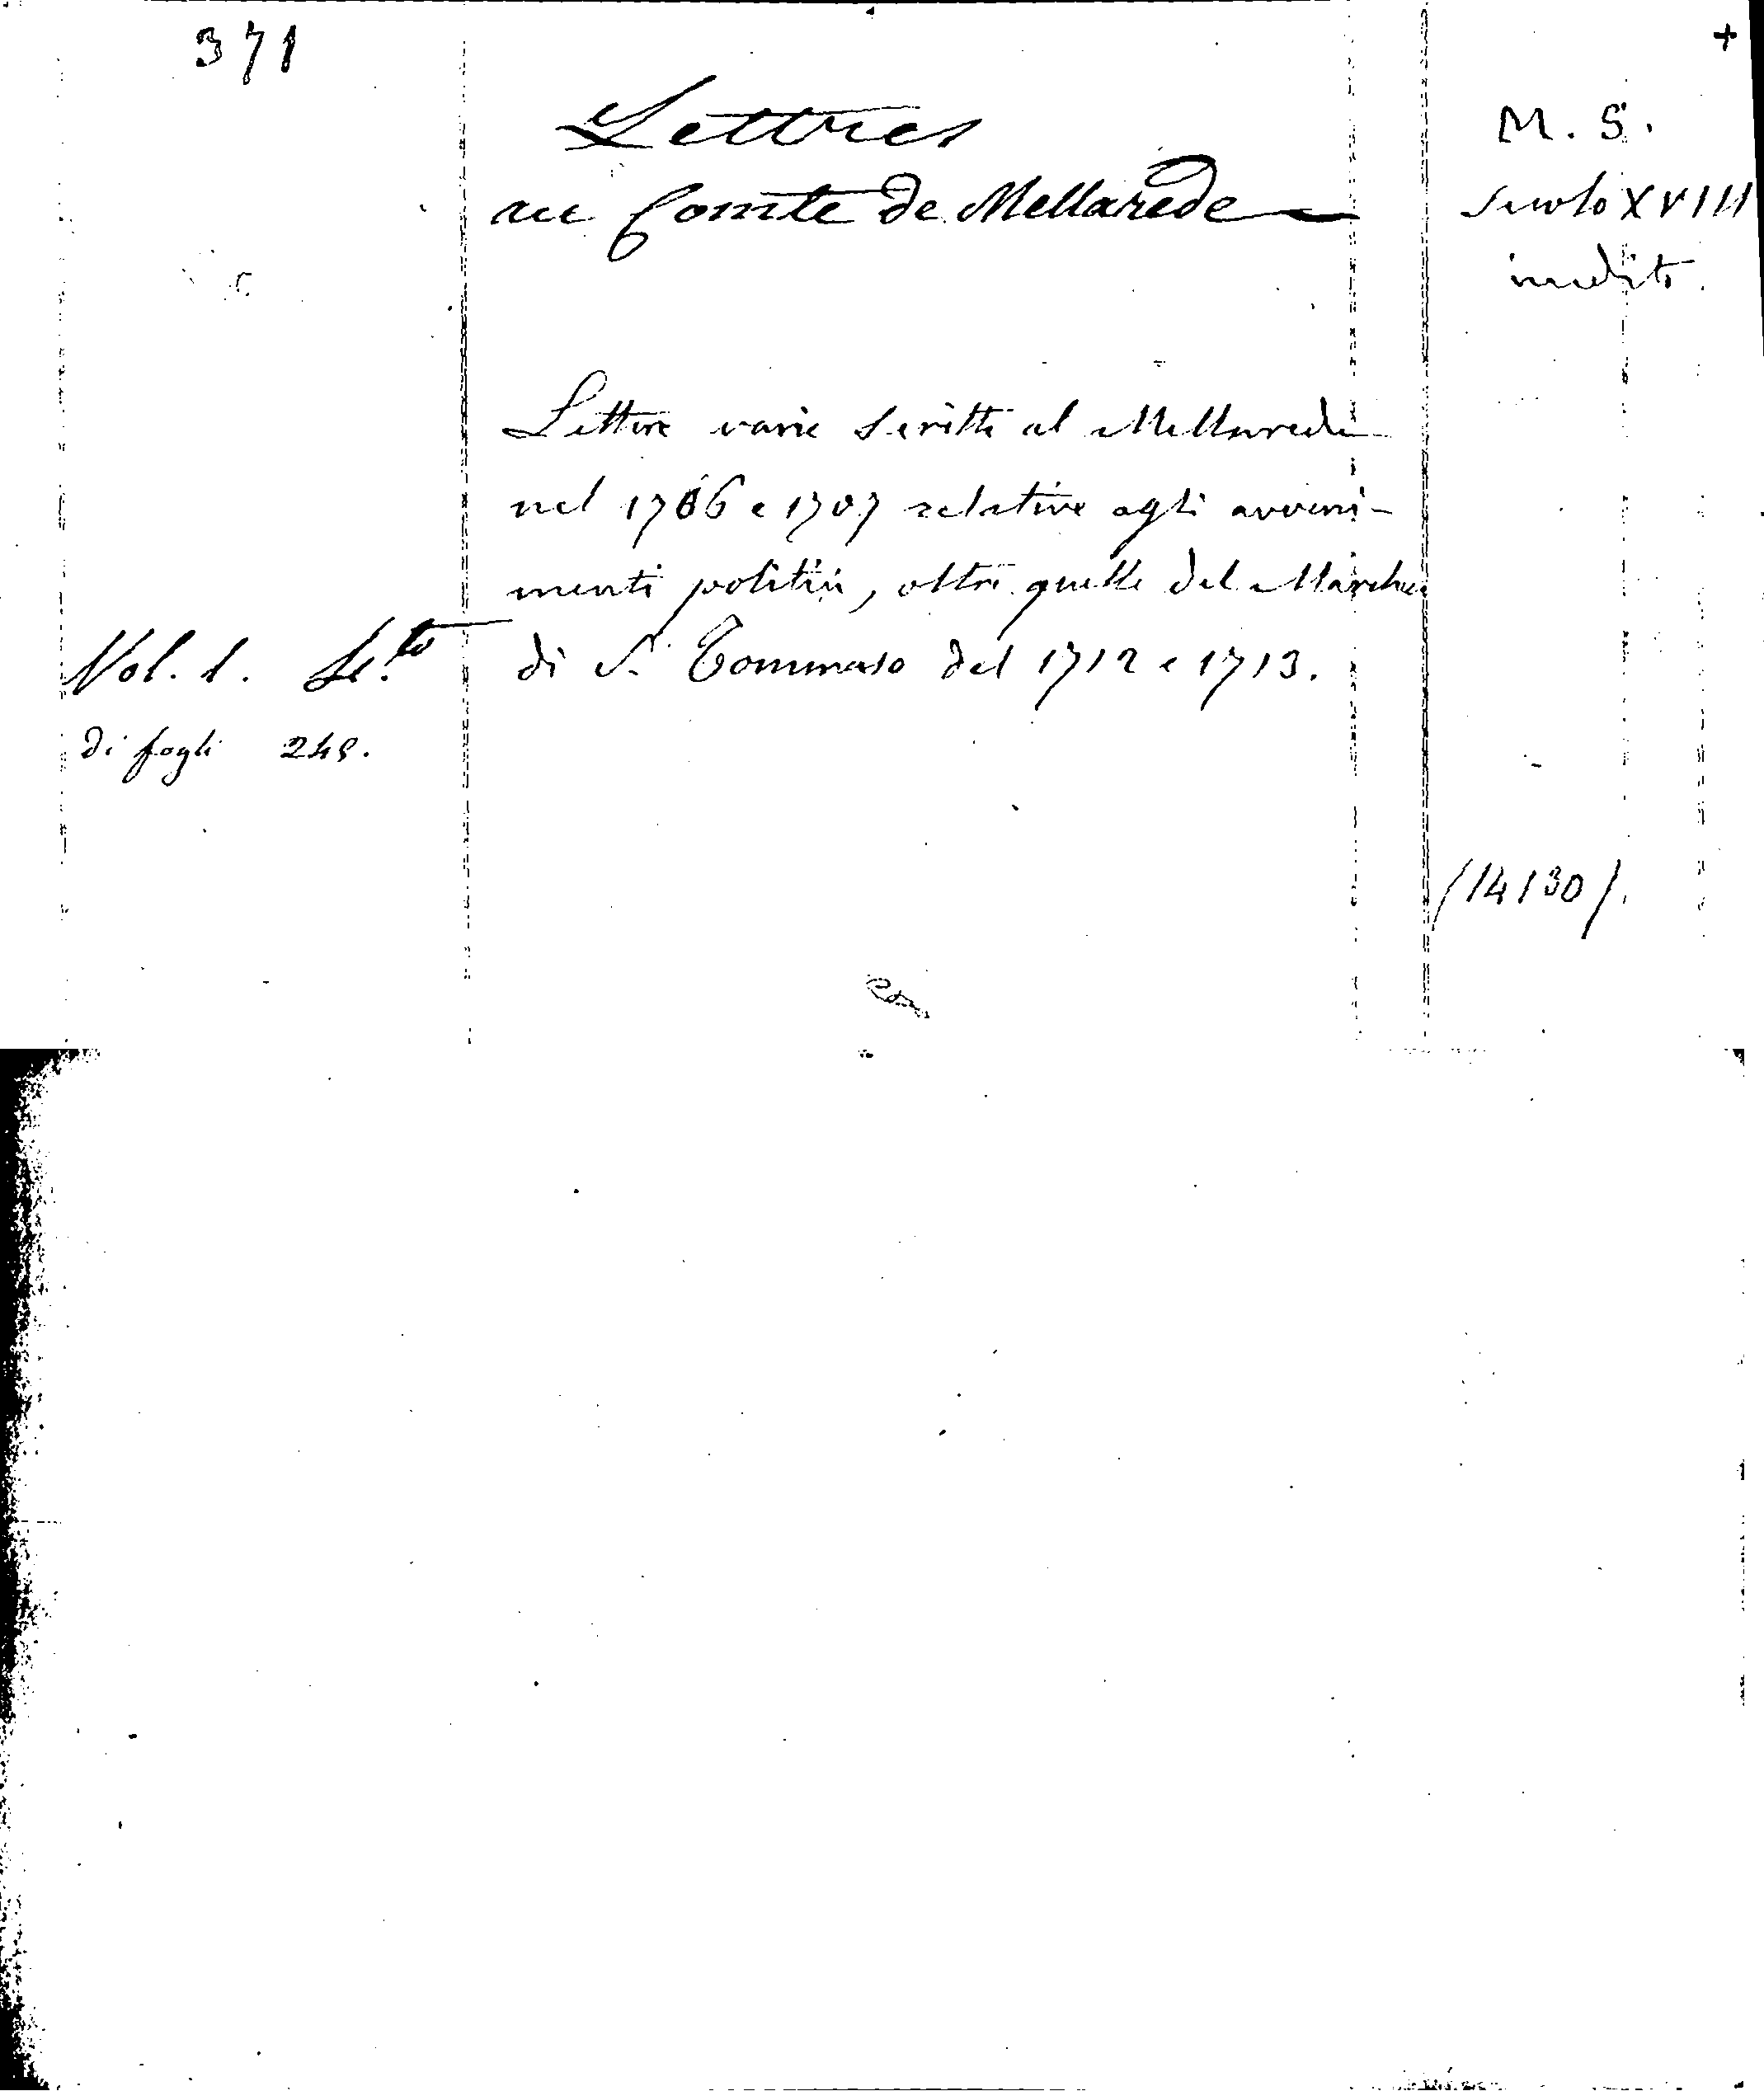 371
+
Lettres
au Comte de Mellarede
M. S.
Secolo XVIII
inedito.
Lettere varie scritte al Mellarede
nel 1706 e 1707 relative agli avveni-
menti politici, oltre quelle del Marchese
di S. Tommaso del 1712 e 1713.
Vol. 1.
di fogli 248.
(14130).